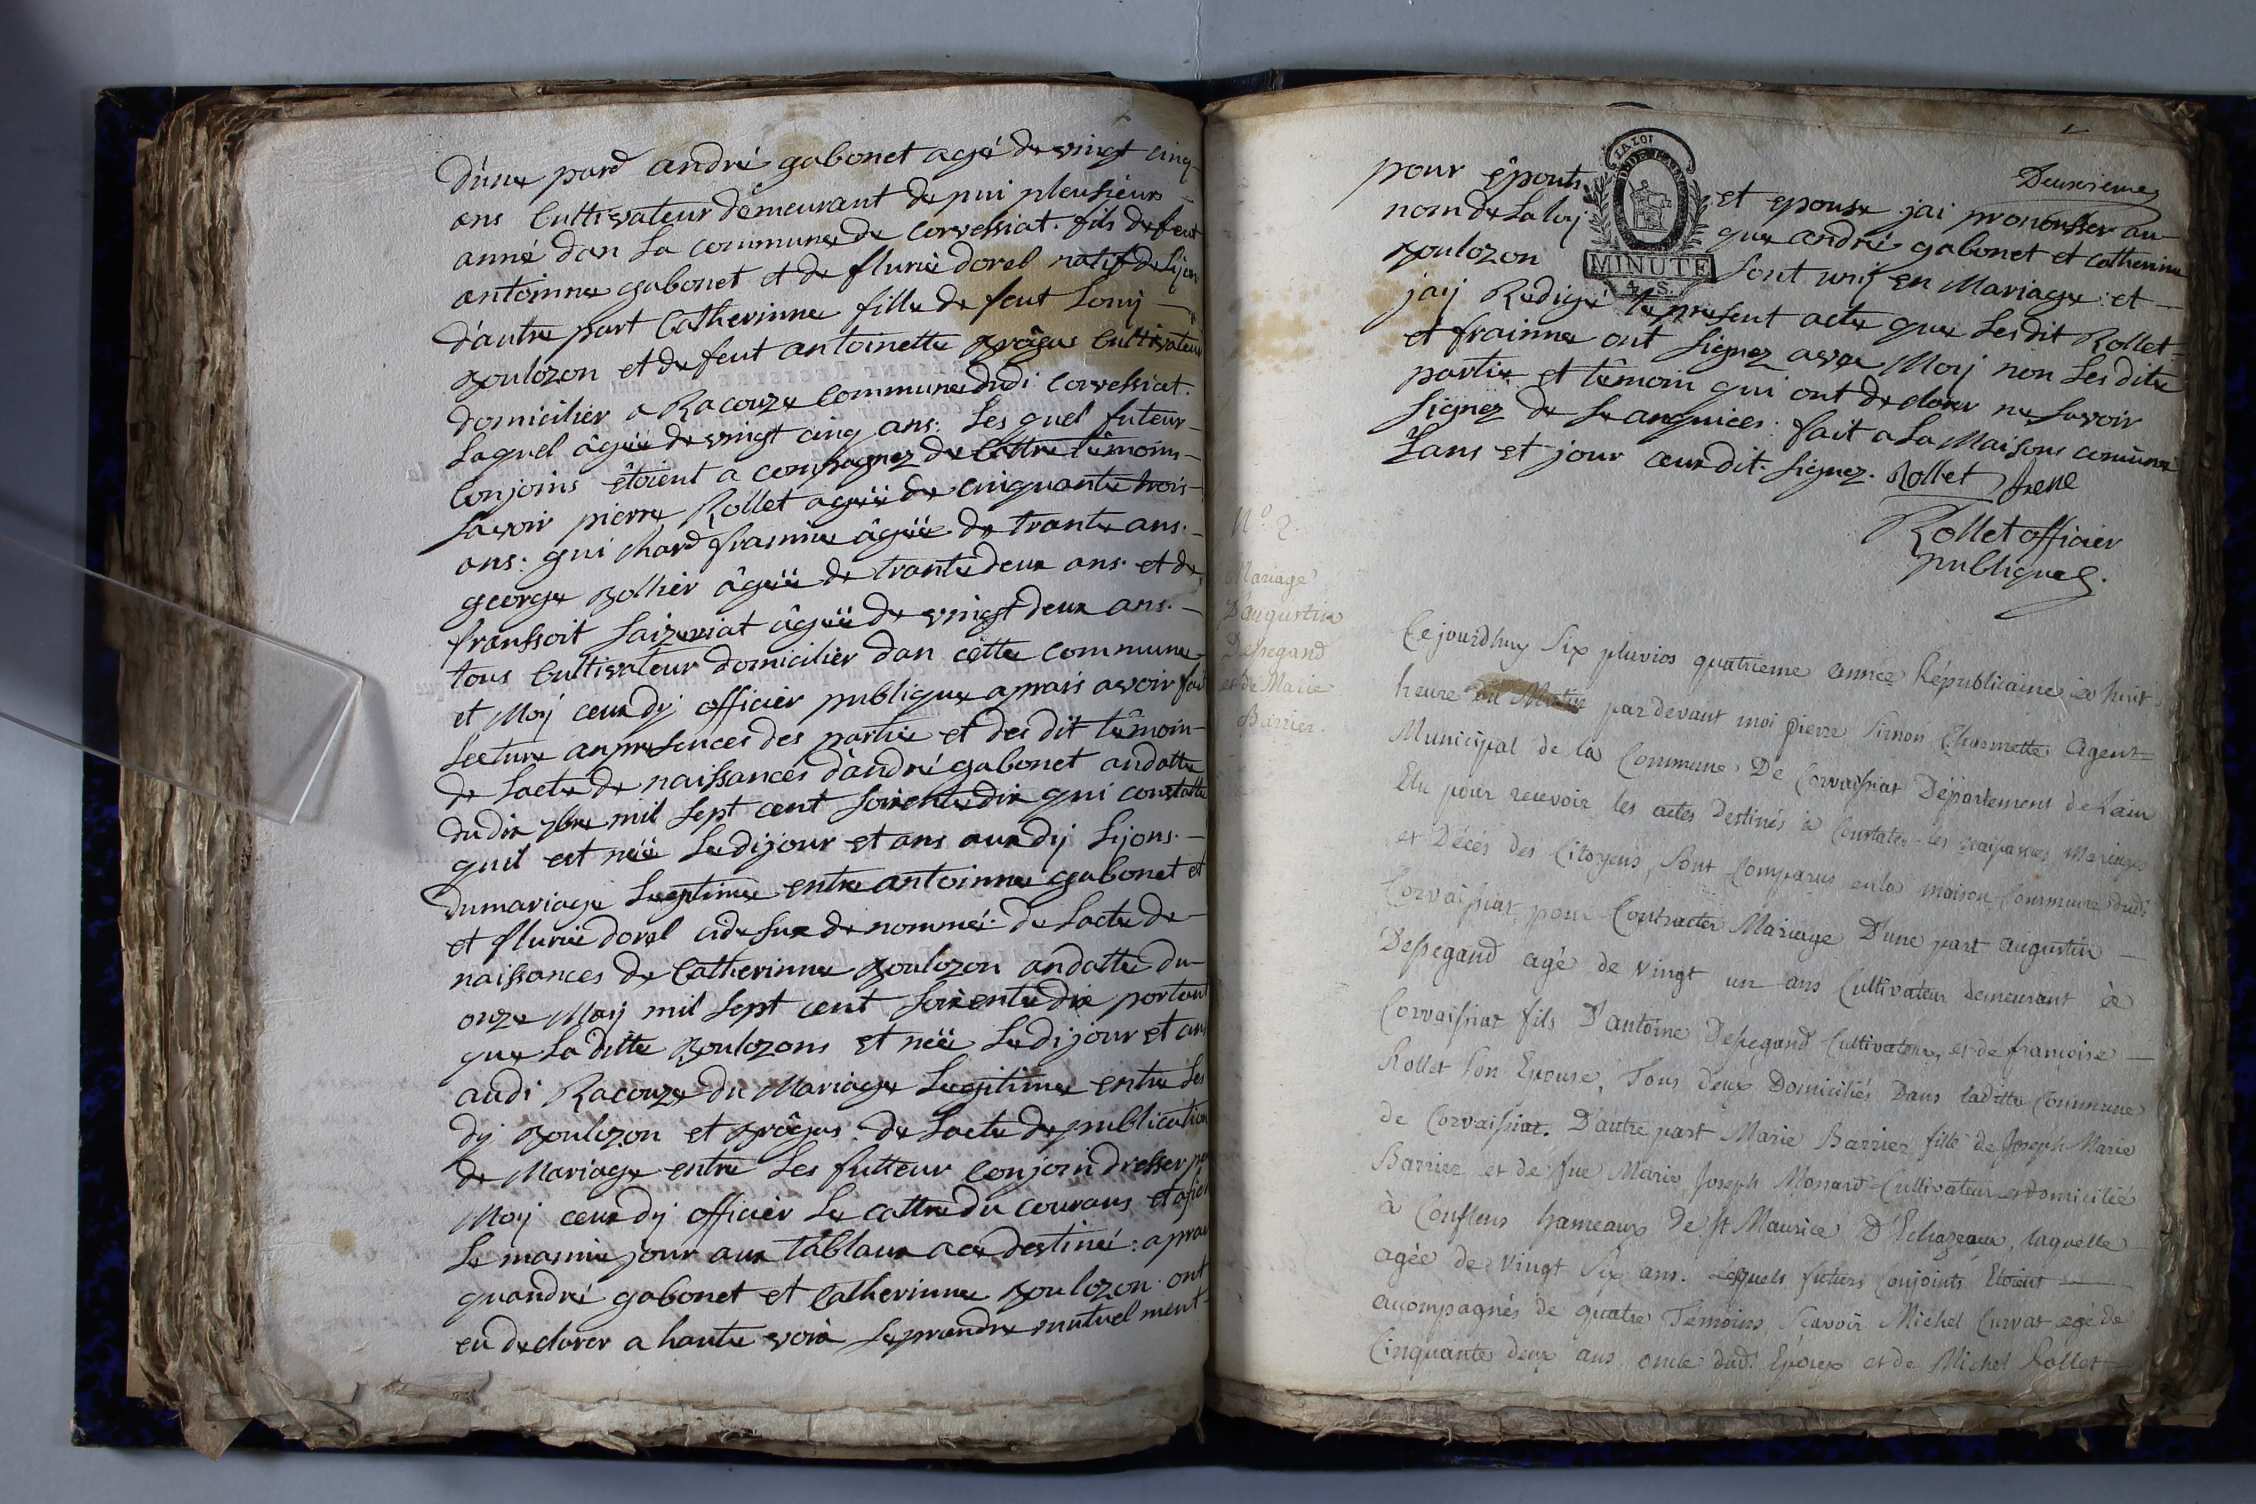 d'une pard andré gabonet agé de vingt cinq
ans Cultivateur demeurant de pui pleusieurs
anné dan La commune de corvessiat. fils de feut
antoinne gabonet et de flurie dorel natif de Lijon
d'autre part Catherinne fille de feut Louij
poulozon et de feut antoinette prôgus Cultivateur
domicilier a Racouze Commune dudi Corvessiat.
Laquel âgéë de vingt cinq ans. Les quel futeur
Conjoins étoient a compagnez de Cattre têmoins
Savoir pierre Rollet agéë de cinquante trois
ans: gui chard frainne âgéë de trante ans.
george pollier âgéë de trante deux ans. et de
franssoit Laizeriat âgéë de vingt deux ans.
tous Cultivateur domicilier dan cette commune
et Moij ceux dij officier publique aprais avoir fait
Lecture an presences des partie et des dit têmoin
de Lacte de naissances d'andré gabonet an datte
du dix 7bre mil sept cent soixente dix qui constatte
quil est néë Le di jour et ans aux dij Lijons.
du mariage Legitime entre antoinne gabonet et
et flurie dorel ci de sux de nommé: de Lacte de
naissances de Catherinne poulozon an datte du
onze Maij mil sept cent soixente dix portant
que La ditte poulozons et néë Le di jour et ans
au di Racouze du Mariage Legitime entre Les
dij poulozon et prôgus. de Lacte de publication
de Mariage entre Les futteur Conjoin dresser par
Moij ceux dij officier Le cattre du courans et afiché
Le mamme jour aux tâblaux a ce destiné: aprais
quandré gabonet et Catherinne poulozon. ont
eu declarer a haute voix Se prandre mutuel ment
Deuxieme
LA LOI
MINUTE
4 S.
pour êpouts et epouse jai pronousser au
nom de La loij que andré gabonet et catherinne
poulozon sont unis en Mariage: et
jaij Redigé Le present acte que Les dit Rollet
et frainne ont signez avec Moij non Les dite
partie et têmoin qui ont declarer ne savoir
signez de Le anquices. fait a La Maisons comunne
Lans et jour ceux dit. signez. Rollet frene
Rollet officier
publique.
N° 2.
Mariage
D'augustin
Dessegand
et de Marie
Barrier.
Ce jourdhuy Six pluvios quatrieme année Républicaine à huit
heure du Matin par devant moi pierre Simon Charmette Agent
Municipal de la Commune De Corvaissiat Département de Lain
Elu pour recevoir les actes Destinés à Constater les naissances Mariages
et Décés des Citoyens, Sont Comparus en la maison Commune dudt
Corvaissiat pour Contracter Mariage D'une part augustin
Dessegand agé de vingt un ans Cultivateur demeurant à
Corvaissiat fils D'antoine Dessegand Cultivateur, et de françoise
Rollet Son Epouse, Tous deux Domiciliés Dans ladite Commune
de Corvaissiat. D'autre part Marie Barrier fille de Joseph Marie
Barrier et de fue Marie Joseph Monard Cultivateur et domicilié
à Conflens hameaux de St Maurice D'Echazeaux, laquelle
agée de Vingt Six ans. Lesquels futurs Conjoints Etoient
acompagnés de quatre Témoins Scavoir Michel Curvat agé de
Cinquante deux ans oncle dud. Epoux et de Michel Rollet